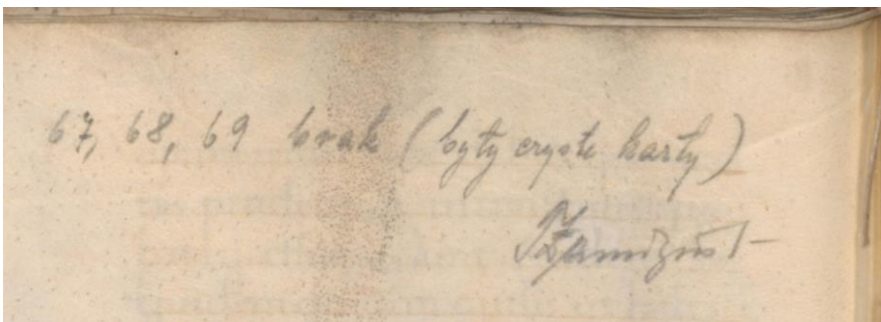 67, 68, 69 brak (były czyste karty)